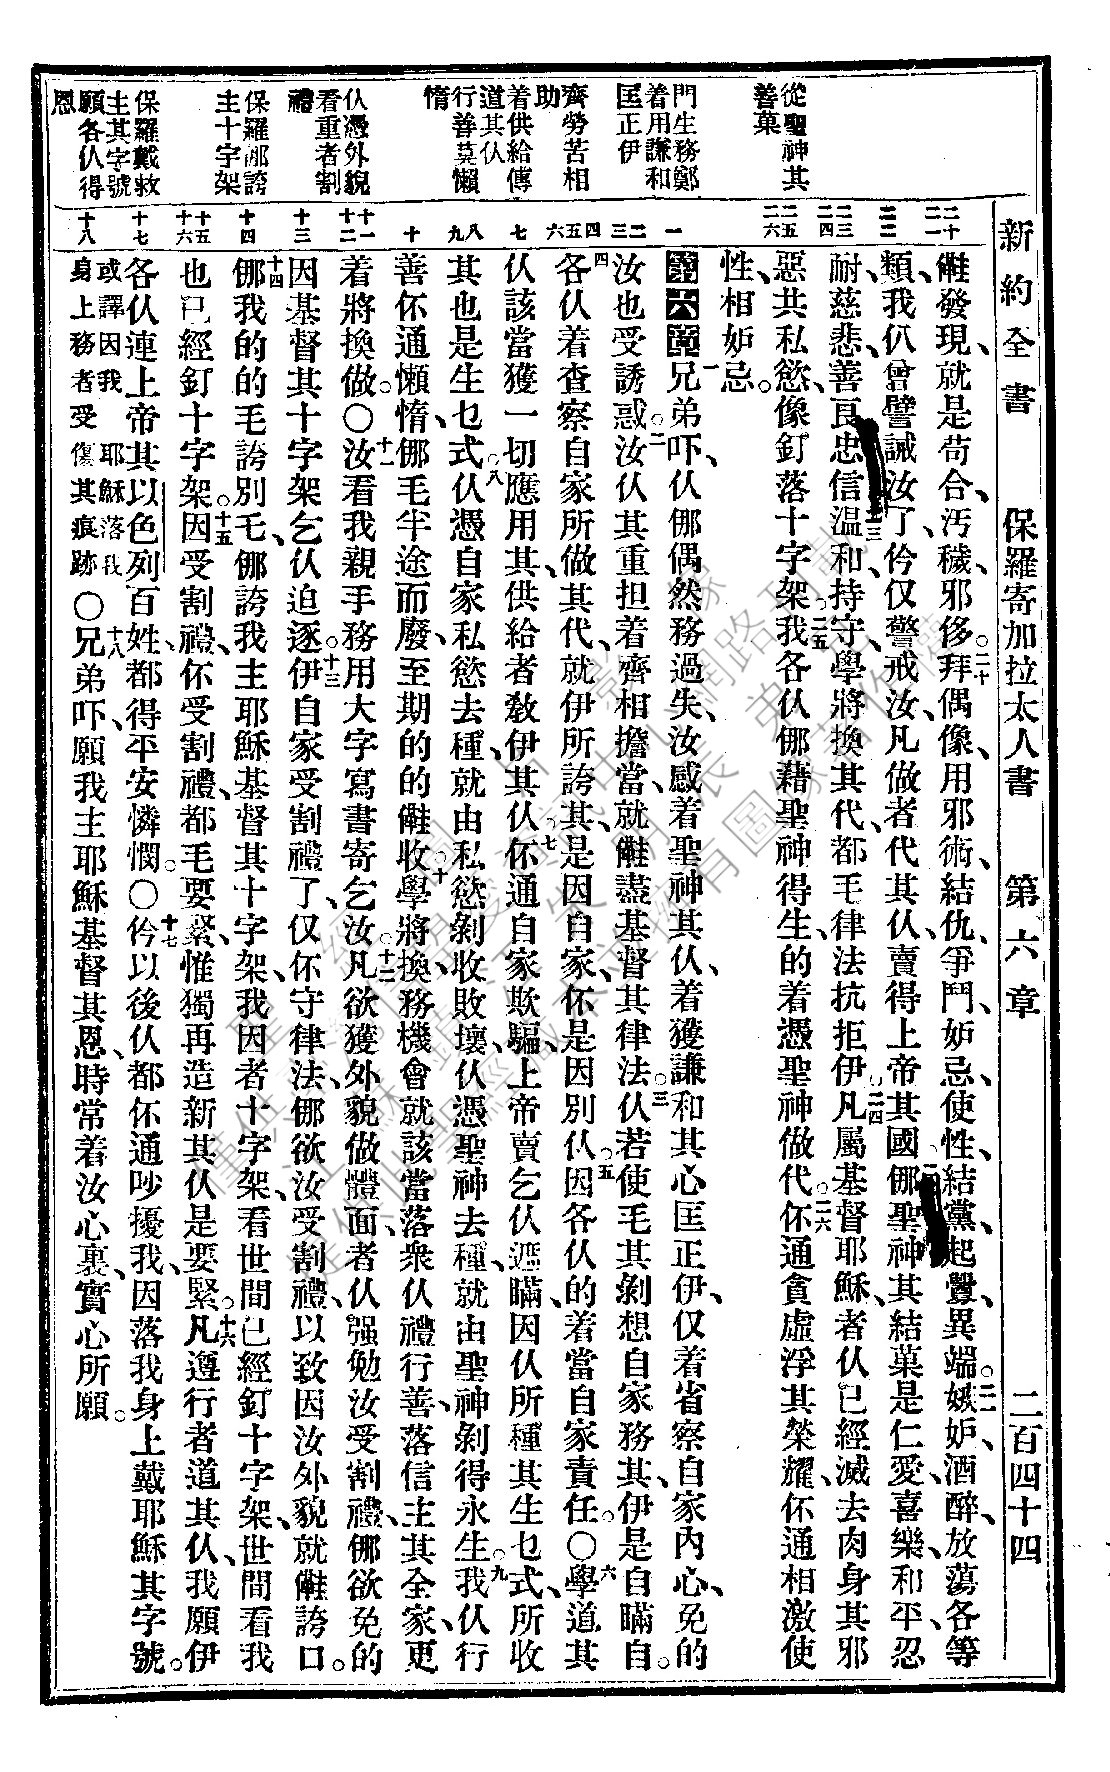 新約全書 保羅寄加拉太人書 第六章 二百四十四
從聖神其
善菓
門生務鄭
着用謙和
匡正伊
齊勞苦相
助
着供給傳
道其仈
行善莫懶
惰
仈憑外貌
看重者割
禮
保羅䣝誇
主十字架
保羅戴救
主其字號
願各仈得
恩
二十
二一
二二
二三
二四
二五
二六
一
二
三
四
五
六
七
八
九
十
十一
十二
十三
十四
十五
十六
十七
十八
發現、就是苟合、汚穢、邪侈。二十拜偶像、用邪術、結仇、爭鬥、妒忌、使性、結黨、起釁、異端。二一嫉妒、酒醉、放蕩、各等
類、我仈曾譬誡汝了、仱仅警戒汝、凡做者代其仈、賣得上帝其國。䣝聖神其結菓、是仁愛、喜樂、和平、忍
耐、慈悲、善良、忠信、溫和、持守、學將換其代、都毛律法抗拒伊。二四凡屬基督耶穌者仈、已經滅去肉身其邪
惡共私慾、像釘落十字架。二五我各仈䣝藉聖神得生的、着憑聖神做代。二六伓通貪虛浮其榮耀、伓通相激使
性、相妒忌。
第六章 一兄弟吓、仈䣝偶然務過失、汝感着聖神其仈、着獲謙和其心匡正伊、仅着省察自家內心、免的
汝也受誘惑。二汝仈其重担、着齊相擔當、就盡基督其律法。三仈若使毛其剝想自家務其、伊是自瞞自。
四各仈着查察自家所做其代、就伊所誇其、是因自家、伓是因別仈。五因各仈的着當自家責任。〇六學道其
仈、該當獲一切應用其、供給者敎伊其仈。七伓通自家欺騙、上帝賣乞仈遮瞞、因仈所種其生乜式、所收
其也是生乜式。八仈憑自家私慾去種、就由私慾剝收敗壞、仈憑聖神去種、就由聖神剝得永生。九我仈行
善、伓通懶惰、䣝毛半途而廢、至期的的收。十學將換、務機會就該當落衆仈禮行善、落信主其全家、更
着將換做。〇十一汝看我親手務用大字寫書寄乞汝。十二凡欲獲外貌做體面者仈、强勉汝受割禮、䣝欲免的
因基督其十字架、乞仈迫逐。十三伊自家受割禮了、仅伓守律法、䣝欲汝受割禮、以致因汝外貌就誇口。
十四䣝我的的毛誇別乇、䣝誇我主耶穌基督其十字架、我因者十字架、看世間已經釘十字架、世間看我
也已經釘十字架。十五因受割禮、伓受割禮、都毛要緊、惟獨再造新其仈是要緊。十六凡遵行者道其仈、我願伊
各仈連上帝其以色列百姓、都得平安憐憫。〇十七仱以後仈都伓通吵擾我、因落我身上戴耶穌其字號。
或譯因我耶穌落我身上務者受傷其痕跡〇十八兄弟吓、願我主耶穌基督其恩、時常着汝心裏、實心所願。